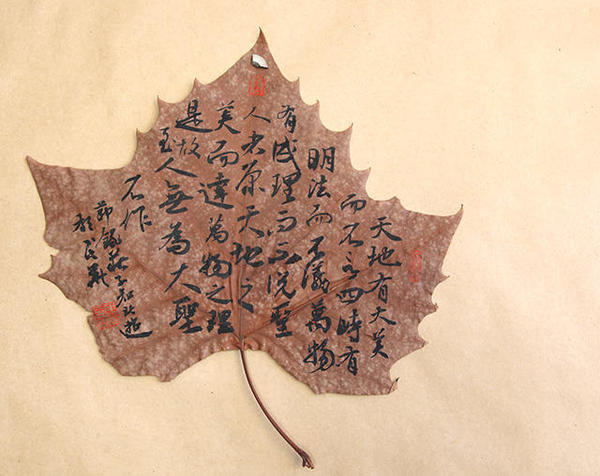 天地有大美
而不言四時有
明法而不議萬物
有成理而不說聖
人者原天地之
美而達萬物之理
是故至人無為大聖
不作
節錄莊子知北遊